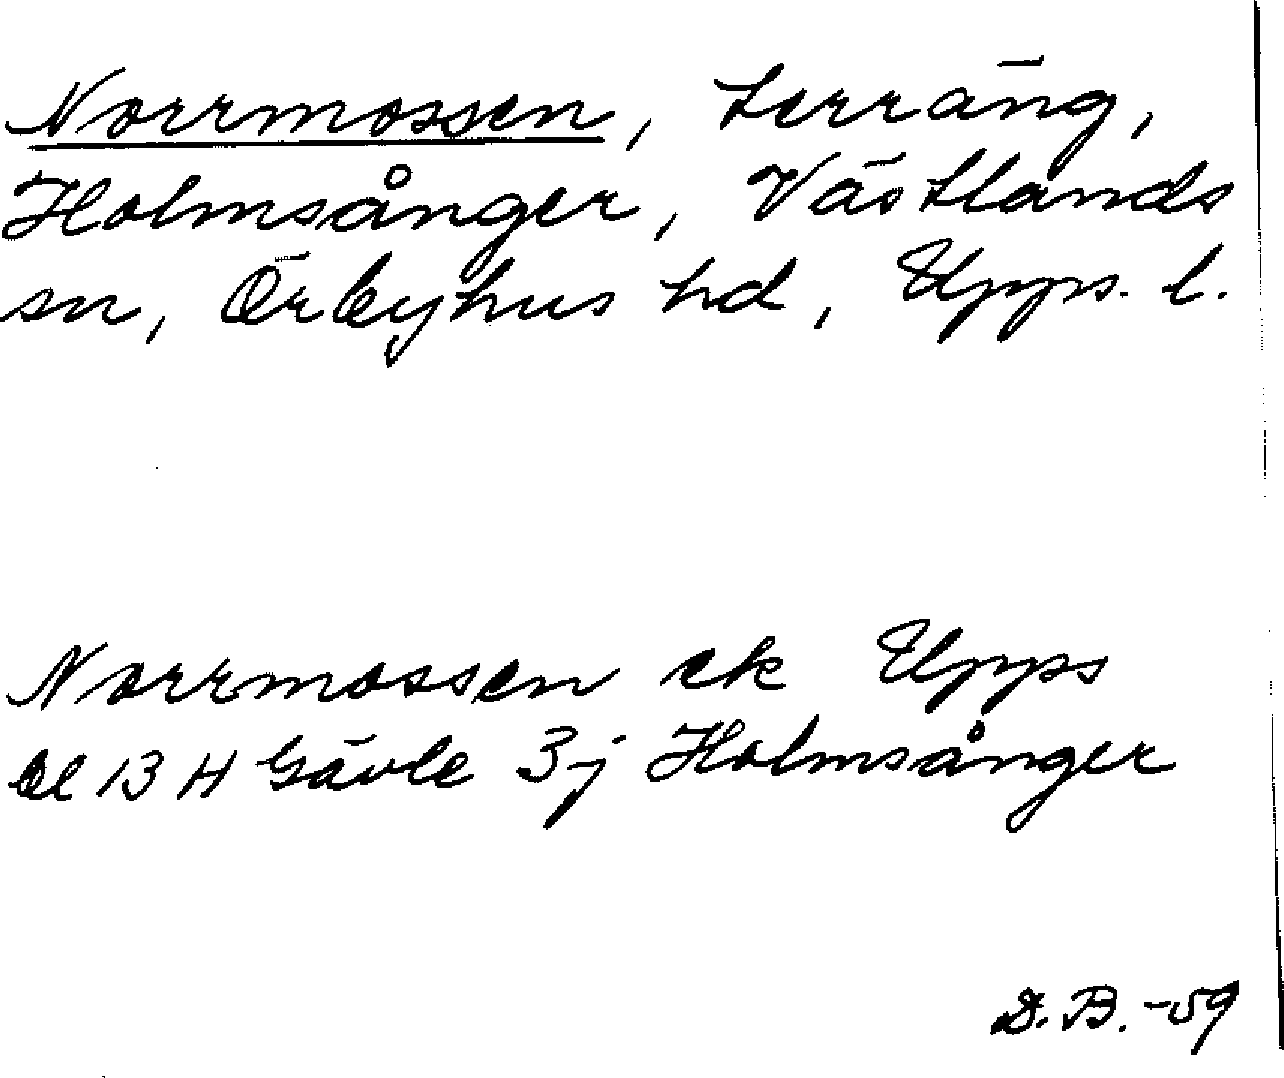 Norrmossen, terräng,
Holmsånger, Västlands
sn, Örbyhus hd, Upps. l.
Norrmossen ek Upps
bl 13 H Gävle 3j Holmsånger
D.B. -59